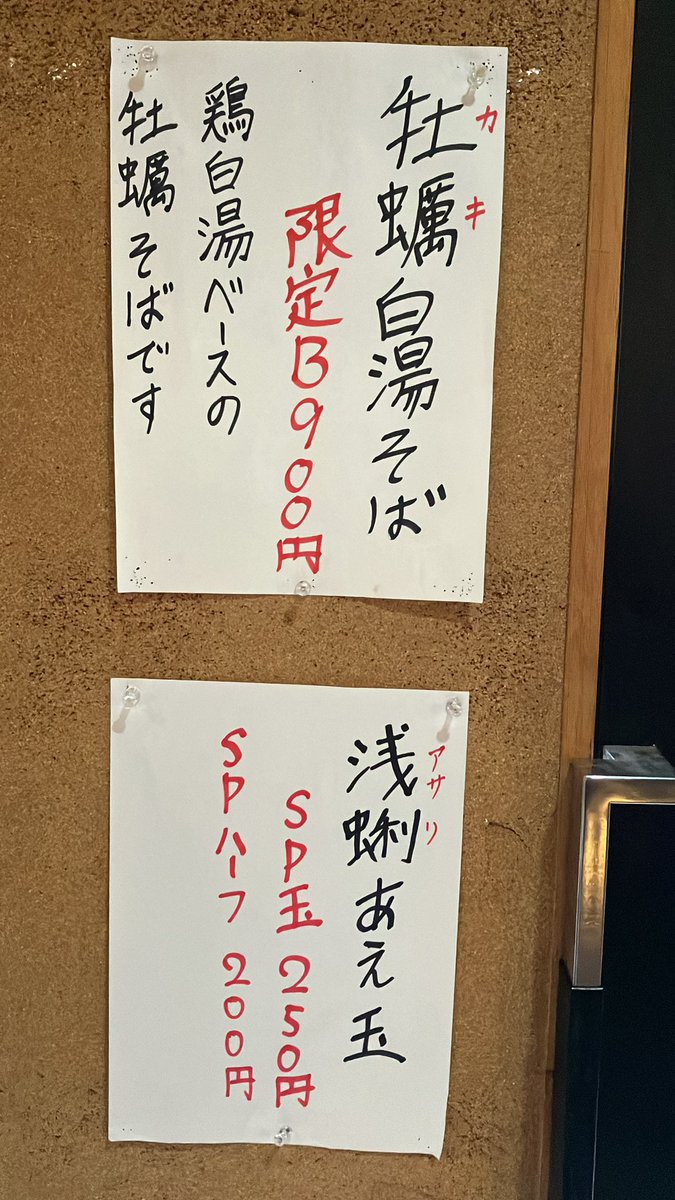 牡蠣白湯そば
カキ
限定B900円
鶏白湯ベースの
牡蠣そばです
浅蜊あえ玉
アサリ
SP玉 250円
SPハーフ 200円